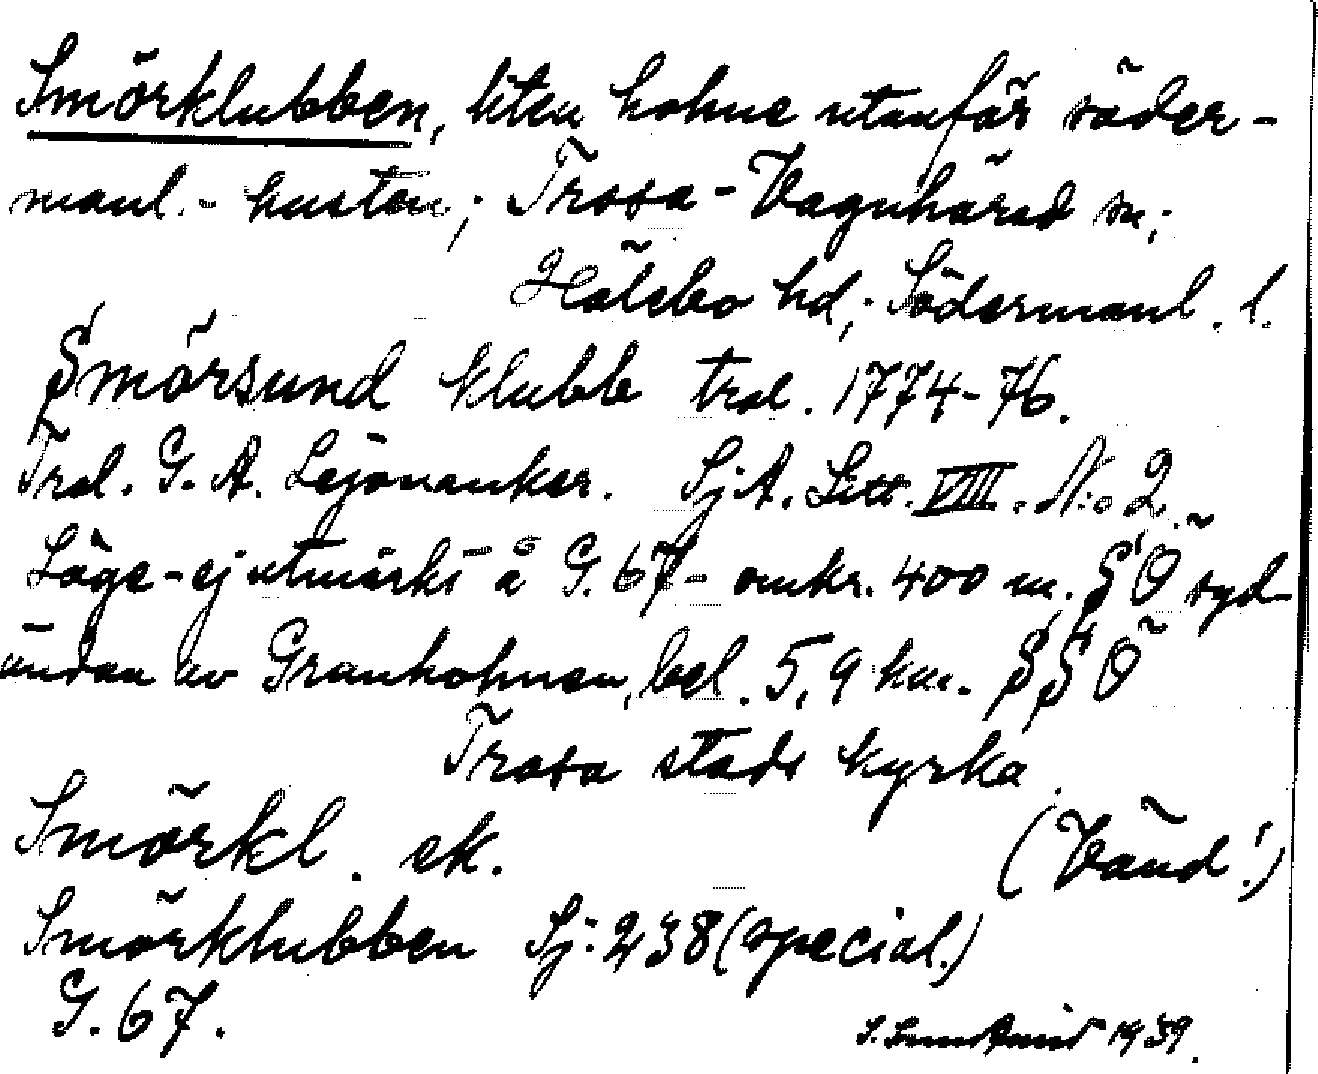 Smörklubben, liten holme utanför söder-
manl.-kusten; Trosa-Vagnhärad sn;
Hölebo hd; Södermanl. l.
Smörsund klubb trol. 1774-76.
Trol. G. A. Lejonanker. SjA. Litt. VIII. N:o 2.
Läge-ej utmärkt å G. 67- omkr. 400 m. SÖ syd-
ändan av Granholmen, bel. 5,9 km. SSÖ
Trosa stads kyrka.
Smörkl. ek.
(Vänd!)
Smörklubben Sj: 238 (special.)
G. 67.
1939.